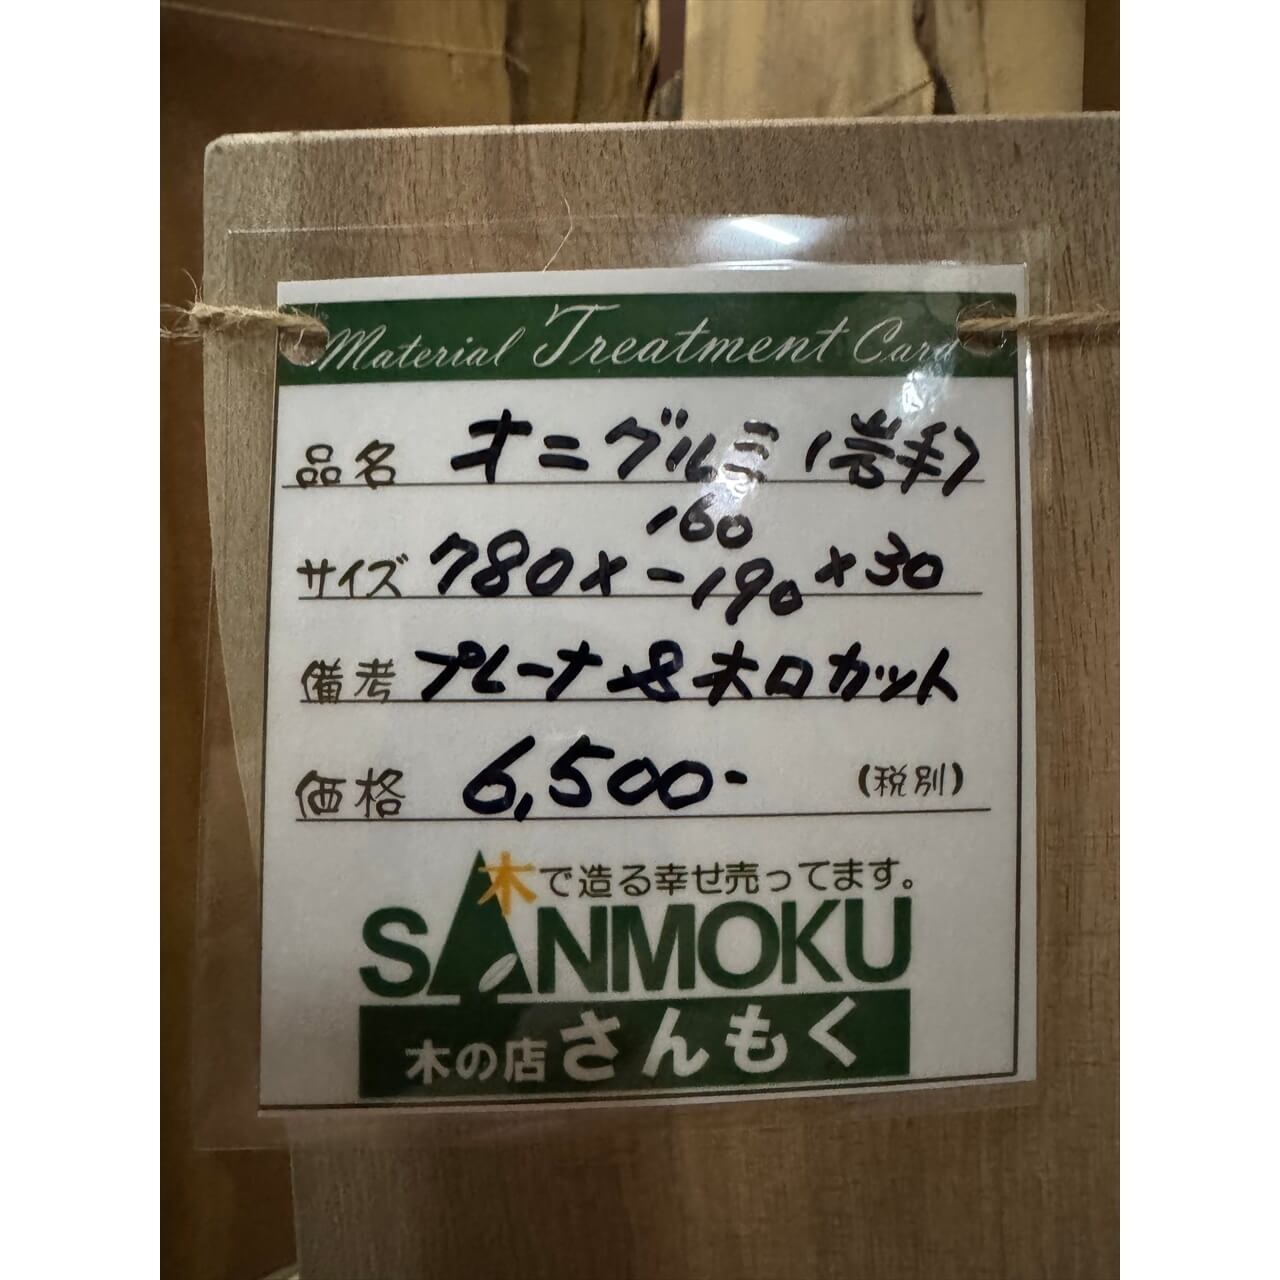 Material Treatment Card
品名 オニグルミ(岩手)
160
サイズ 780×-190×30
備考 プレーナ&木口カット
価格 6,500- (税別)
木で造る幸せ売ってます。
SANMOKU
木の店 さんもく